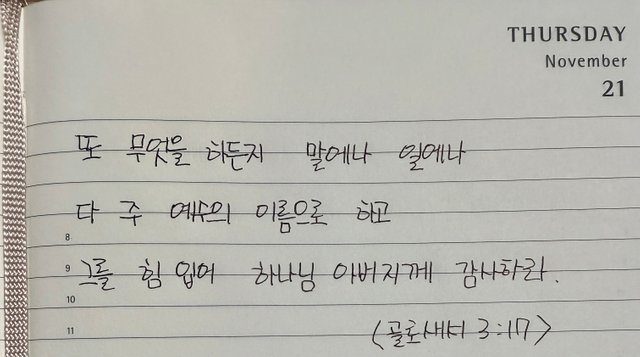 THURSDAY
November
21
또 무엇을 하든지 말에나 일에나
다 주 예수의 이름으로 하고
8
9 그를 힘 입어 하나님 아버지께 감사하라.
10
11
(골로새서 3:17)